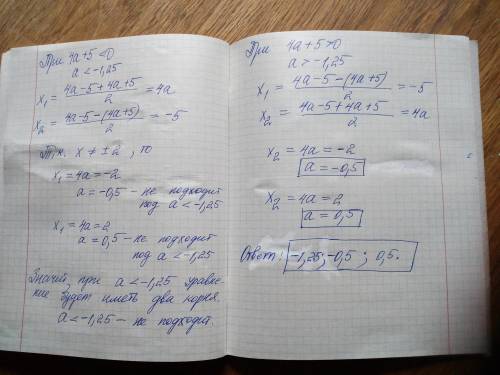 При 4a+5<0
a<-1,25
x₁ = (4a-5+4a+5)/2 = 4a
x₂ = (4a-5-(4a+5))/2 = -5
Т.к. x ≠ ±2, то
x₁ = 4a = -2
a = -0,5 - не подходит
под a < -1,25
x₁ = 4a = 2
a = 0,5 - не подходит
под a < -1,25
Значит, при a < -1,25 уравне-
ние будет иметь два корня.
a < -1,25 - не подходит.
При 4a+5>0
a > -1,25
x₁ = (4a-5-(4a+5))/2 = -5
x₂ = (4a-5+4a+5)/2 = 4a
x₂ = 4a = -2
a = -0,5
x₂ = 4a = 2
a = 0,5
Ответ: -1,25; -0,5; 0,5.